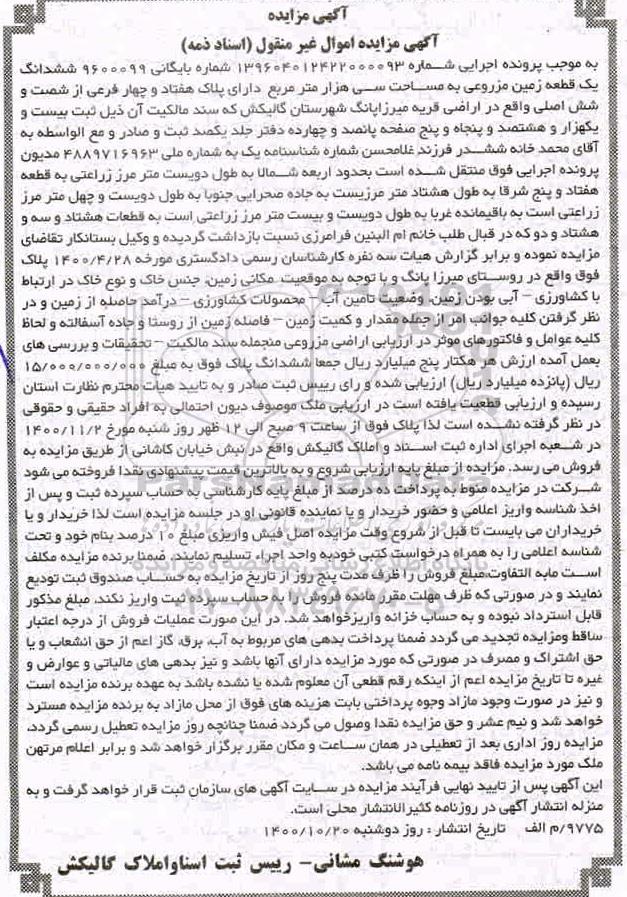 آگهی مزایده
آگهی مزایده اموال غیر منقول (اسناد ذمه)
به موجب پرونده اجرایی شماره ۱۳۹۶۰۴۰۱۲۴۲۲۰۰۰۰۹۳ شماره بایگانی ۹۶۰۰۰۹۹ ششدانگ
یک قطعه زمین مزروعی به مساحت سی هزار متر مربع دارای پلاک هفتاد و چهار فرعی از شصت و
شش اصلی واقع در اراضی قریه میرزاپانگ شهرستان گالیکش که سند مالکیت آن ذیل ثبت بیست و
یکهزار و هشتصد و پنجاه و پنج صفحه پانصد و چهارده دفتر جلد یکصد ثبت و صادر و مع الواسطه به
آقای محمد خانه ششدر فرزند غلامحسن شماره شناسنامه یک به شماره ملی ۴۸۸۹۷۱۶۹۶۳ مدیون
پرونده اجرایی فوق منتقل شده است بحدود اربعه شمالا به طول دویست متر مرز زراعتی به قطعه
هفتاد و پنج شرقا به طول هشتاد متر مرزیست به جاده صحرایی جنوبا به طول دویست و چهل متر مرز
زراعتی است به باقیمانده غربا به طول دویست و بیست متر مرز زراعتی است به قطعات هشتاد و سه و
هشتاد و دو که در قبال طلب خانم ام البنین فرامرزی نسبت بازداشت گردیده و وکیل بستانکار تقاضای
مزایده نموده و برابر گزارش هیات سه نفره کارشناسان رسمی دادگستری مورخه ۱۴۰۰/۴/۲۸ پلاک
فوق واقع در روستای میرزا پانگ و با توجه به موقعیت مکانی زمین، جنس خاک و نوع خاک در ارتباط
با کشاورزی – آبی بودن زمین، وضعیت تامین آب – محصولات کشاورزی – درآمد حاصله از زمین و در
نظر گرفتن کلیه جوانب امر از جمله مقدار و کمیت زمین – فاصله زمین از روستا و جاده آسفالته و لحاظ
کلیه عوامل و فاکتورهای موثر در ارزیابی اراضی مزروعی منجمله سند مالکیت – تحقیقات و بررسی های
بعمل آمده ارزش هر هکتار پنج میلیارد ریال جمعا ششدانگ پلاک فوق به مبلغ ۱۵/۰۰۰/۰۰۰/۰۰۰
ریال (پانزده میلیارد ریال) ارزیابی شده و رای رییس ثبت صادر و به تایید هیات محترم نظارت استان
رسیده و ارزیابی قطعیت یافته است در ارزیابی ملک موصوف دیون احتمالی به افراد حقیقی و حقوقی
در نظر گرفته نشده است لذا پلاک فوق از ساعت ۹ صبح الی ۱۲ ظهر روز شنبه مورخ ۱۴۰۰/۱۱/۲
در شعبه اجرای اداره ثبت اسناد و املاک گالیکش واقع در نبش خیابان کاشانی از طریق مزایده به
فروش می رسد. مزایده از مبلغ پایه ارزیابی شروع و به بالاترین قیمت پیشنهادی نقدا فروخته می شود
شرکت در مزایده منوط به پرداخت ده درصد از مبلغ پایه کارشناسی به حساب سپرده ثبت و پس از
اخذ شناسه واریز اعلامی و حضور خریدار و یا نماینده قانونی او در جلسه مزایده است لذا خریدار و یا
خریداران می بایست تا قبل از شروع وقت مزایده اصل فیش واریزی مبلغ ۱۰ درصد بنام خود و تحت
شناسه اعلامی را به همراه درخواست کتبی خود به واحد اجراء تسلیم نمایند. ضمنا برنده مزایده مکلف
است مابه التفاوت مبلغ فروش را ظرف مدت پنج روز از تاریخ مزایده به حساب صندوق ثبت تودیع
نمایند و در صورتی که ظرف مهلت مقرر مانده فروش را به حساب سپرده ثبت واریز نکند، مبلغ مذکور
قابل استرداد نبوده و به حساب خزانه واریز خواهد شد. در این صورت عملیات فروش از درجه اعتبار
ساقط و مزایده تجدید می گردد ضمنا پرداخت بدهی های مربوط به آب، برق، گاز اعم از حق انشعاب و یا
حق اشتراک و مصرف در صورتی که مورد مزایده دارای آنها باشد و نیز بدهی های مالیاتی و عوارض و
غیره تا تاریخ مزایده اعم از اینکه رقم قطعی آن معلوم شده یا نشده باشد به عهده برنده مزایده است
و نیز در صورت وجود مازاد وجوه پرداختی بابت هزینه های فوق از محل مازاد به برنده مزایده مسترد
خواهد شد و نیم عشر و حق مزایده نقدا وصول می گردد ضمنا چنانچه روز مزایده تعطیل رسمی گردد،
مزایده روز اداری بعد از تعطیلی در همان ساعت و مکان مقرر برگزار خواهد شد و برابر اعلام مرتهن
ملک مورد مزایده فاقد بیمه نامه می باشد.
این آگهی پس از تایید نهایی فرآیند مزایده در سایت آگهی های سازمان ثبت قرار خواهد گرفت و به
منزله انتشار آگهی در روزنامه کثیرالانتشار محلی است.
۹۷۷۵/م الف تاریخ انتشار : روز دوشنبه ۱۴۰۰/۱۰/۲۰
هوشنگ مشانی- رییس ثبت اسناد املاک گالیکش